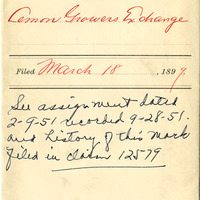 Lemon Growers Exchange
Filed March 18, 1899.
See assignment dated
2-9-51 recorded 9-28-51.
and history of this mark
filed in claim 12579